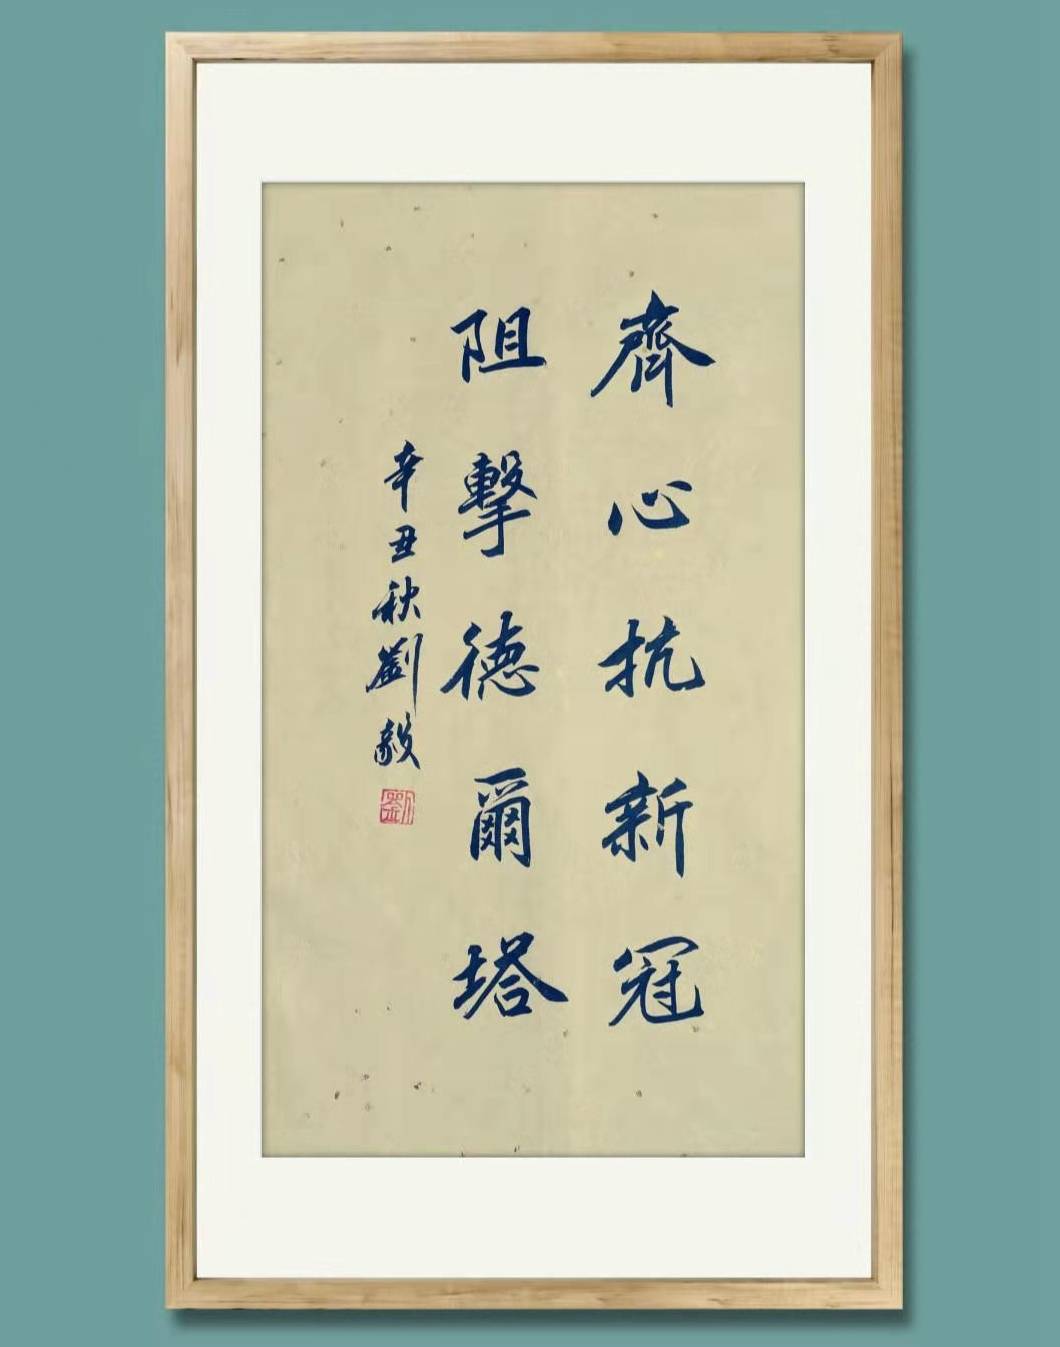 齊心抗新冠
阻擊德爾塔
辛丑秋劉毅
劉